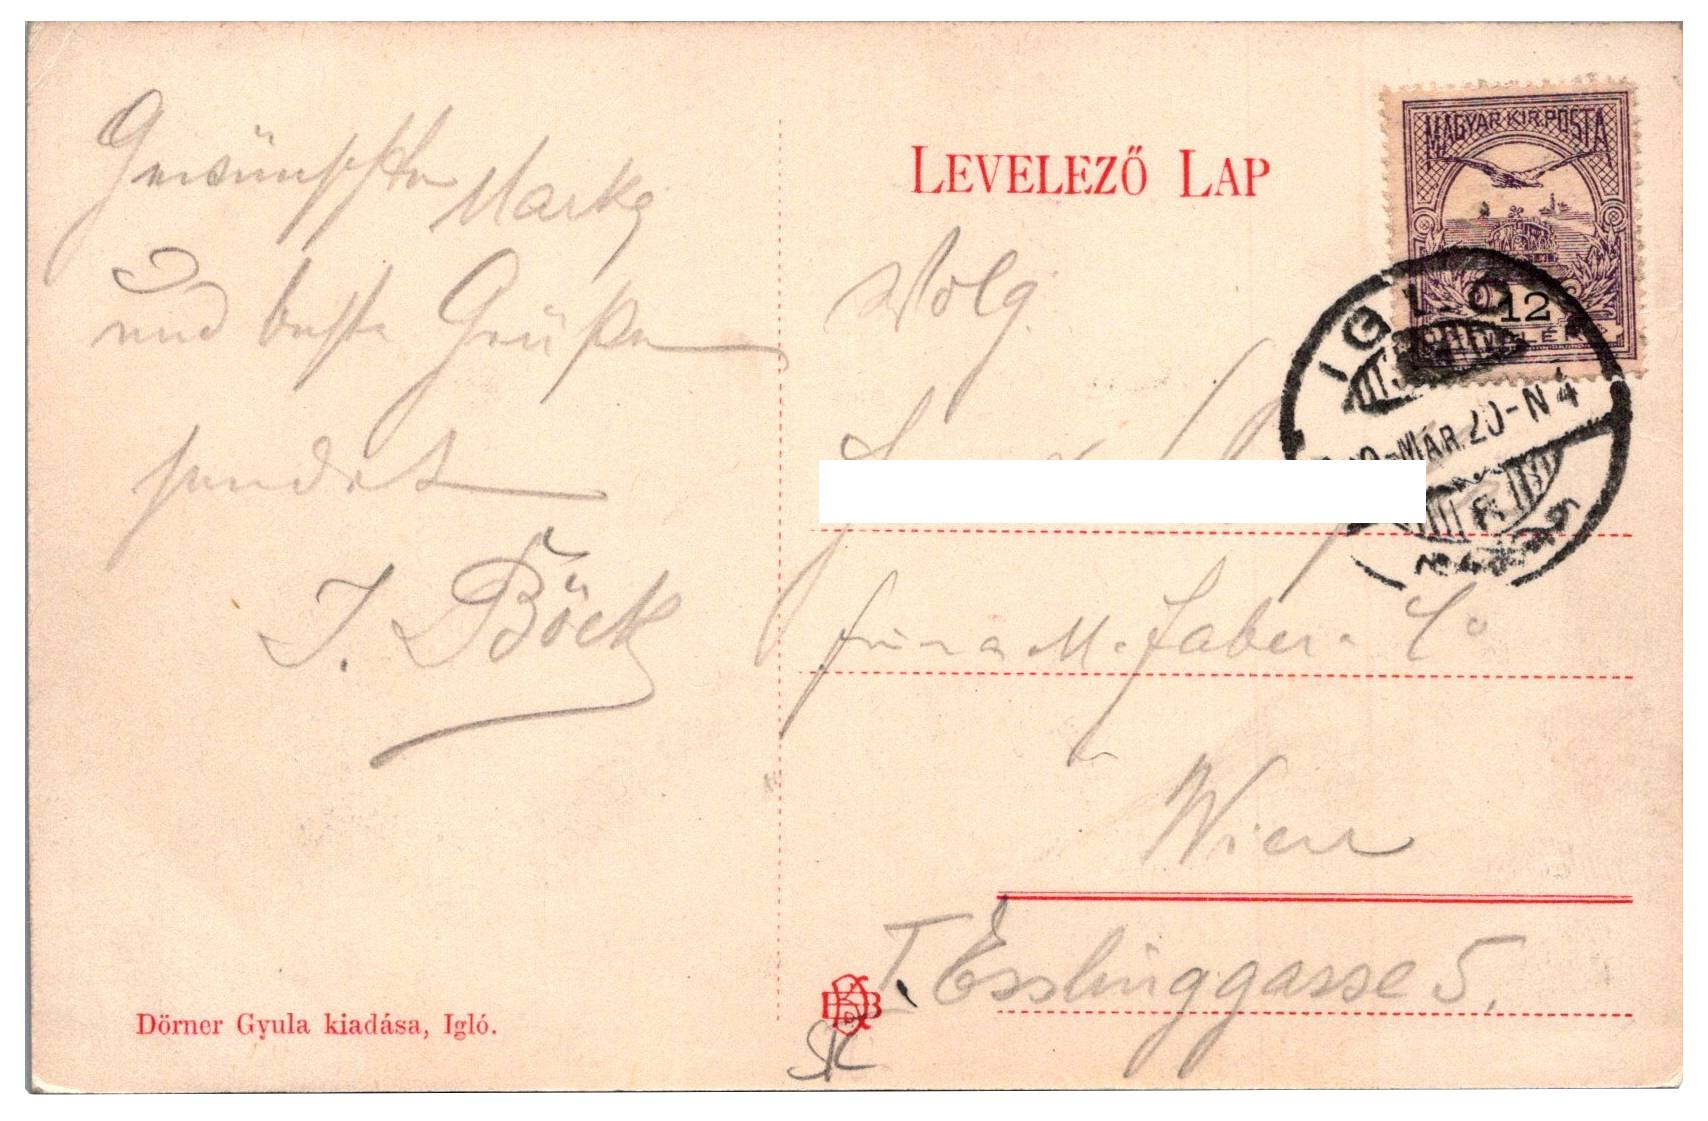 Gewünschte Marke
und beste Grüße
sendet
J. Böck
Dörner Gyula kiadása, Igló.
LEVELEZŐ LAP
Wolg.
firma M. Faber & Co
Wien
I. Esslinggasse 5.
MAGYAR KIR. POSTA
12
IGLÓ
MÁR. 20-N4